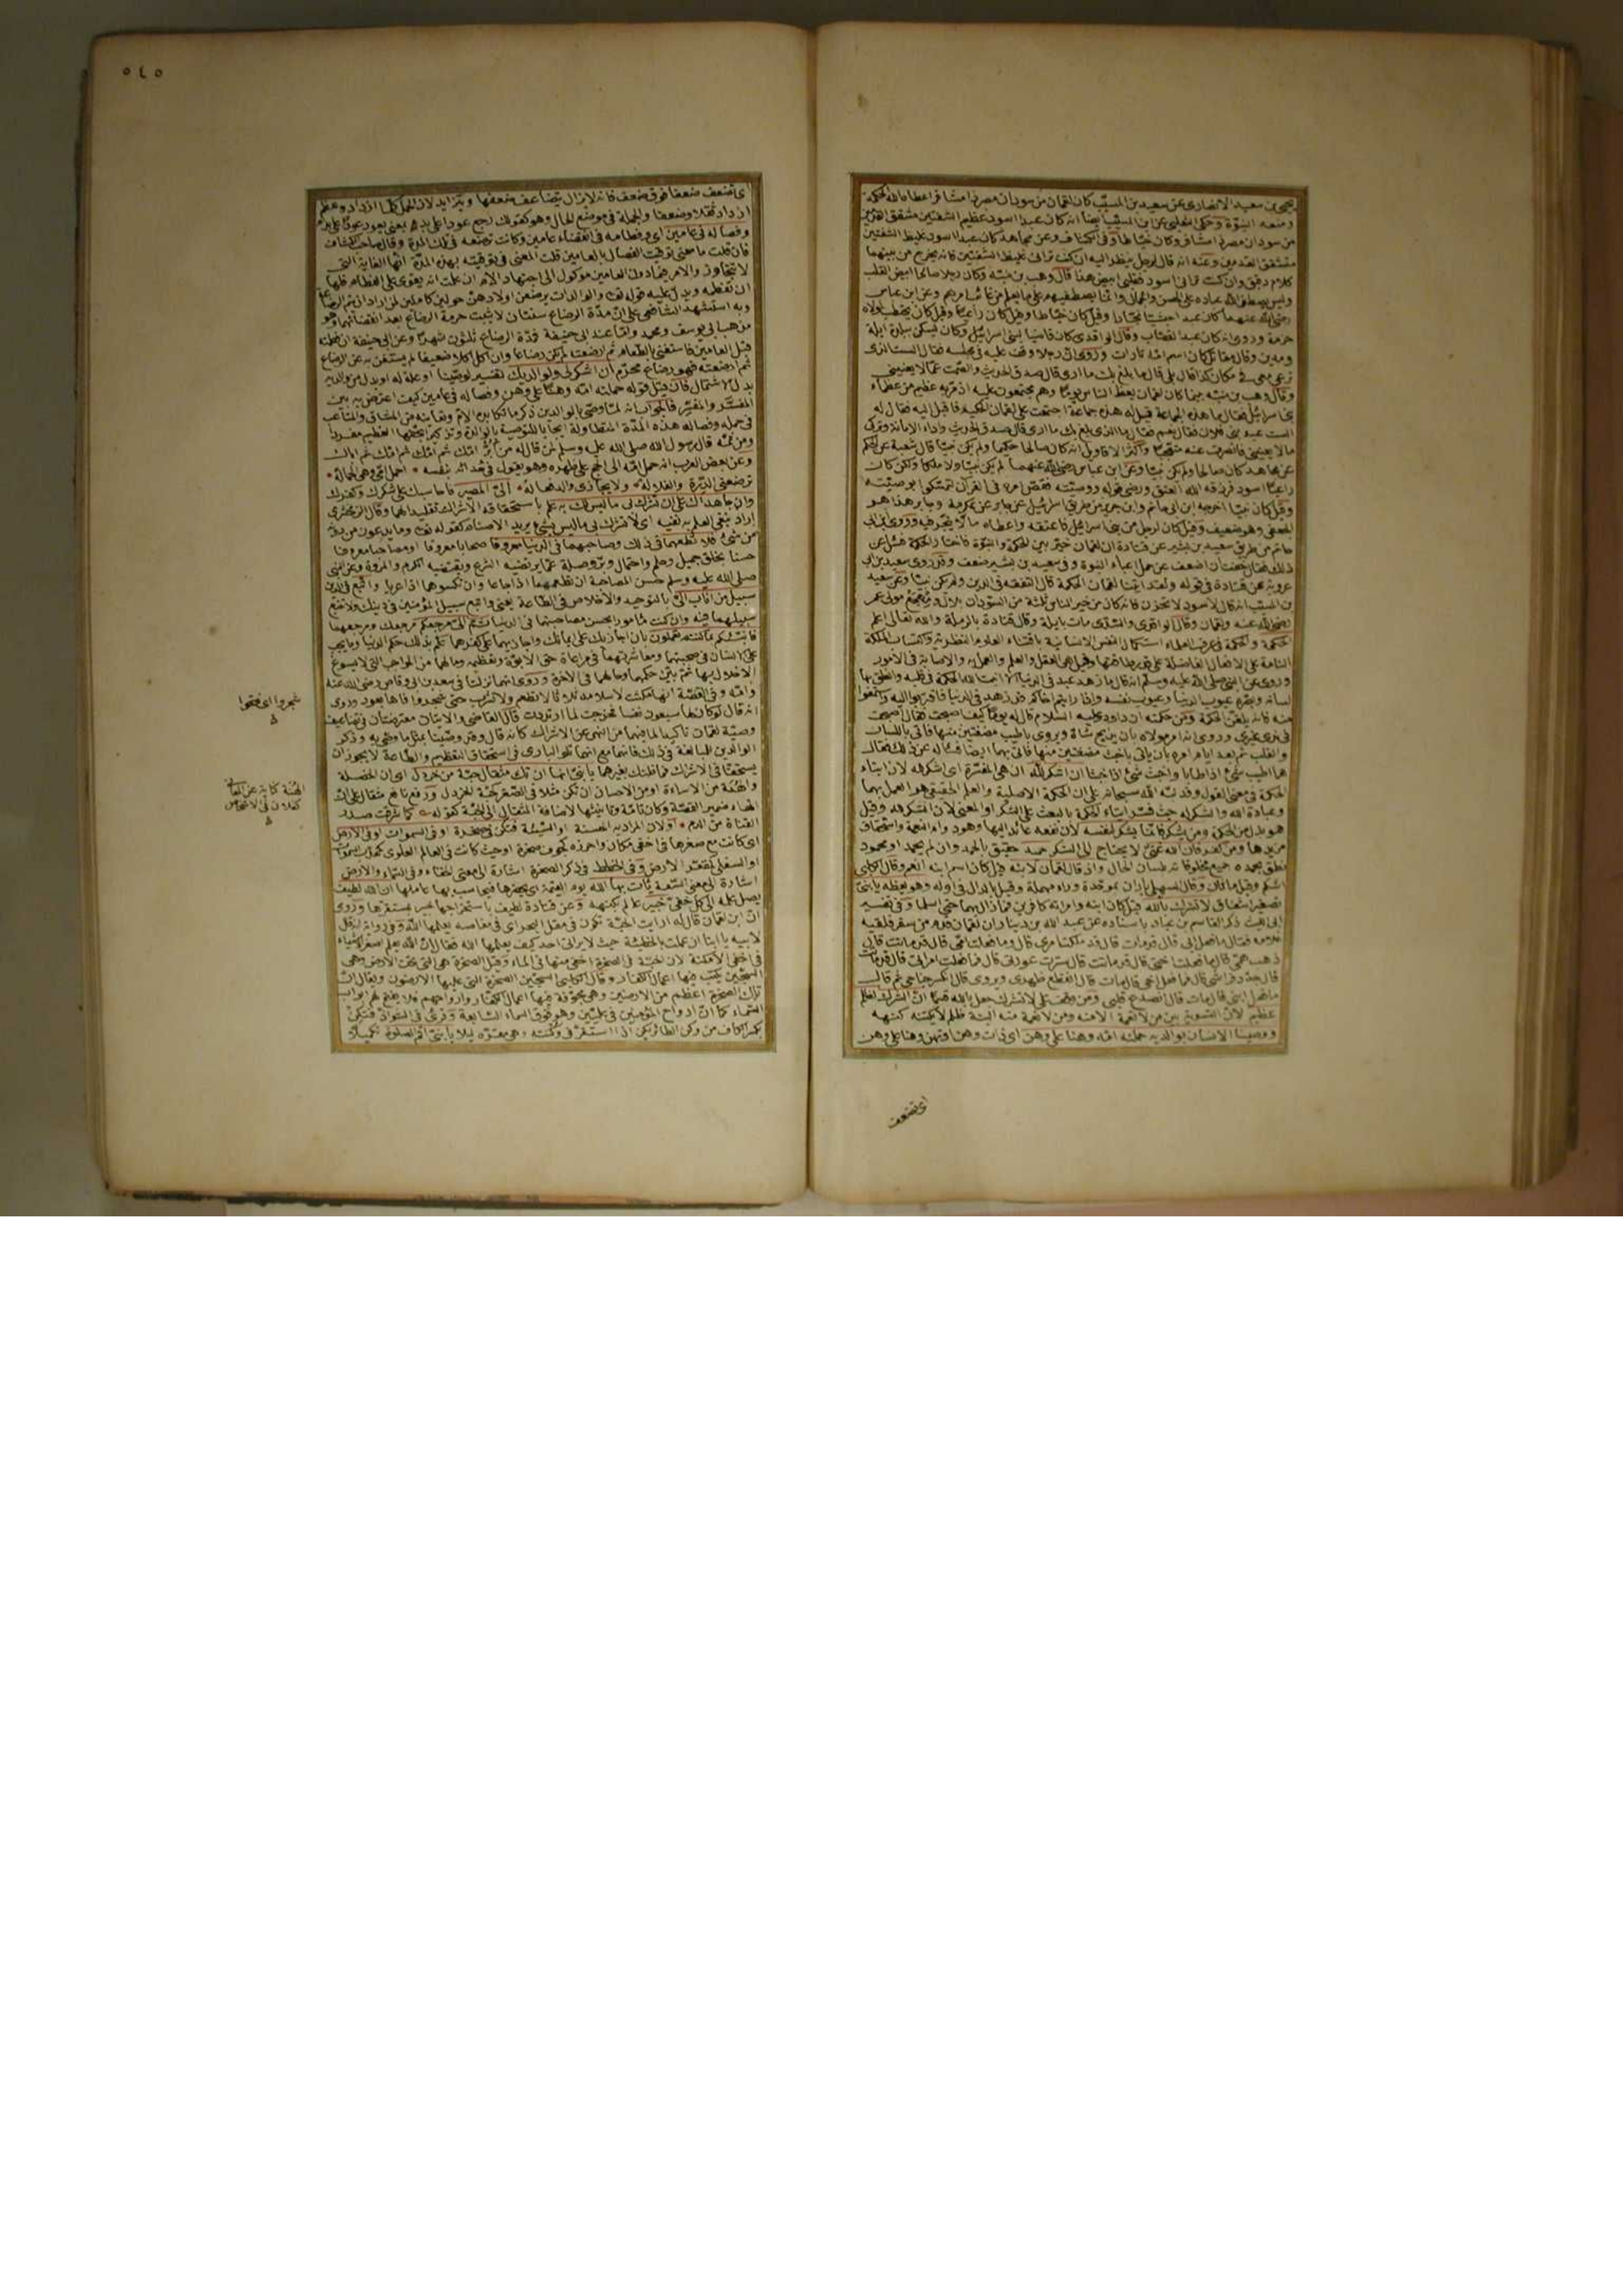 يحيى بن سعيد الانصارى عن سعيد بن المسيب كان لقمان من سودان مصر ذا مشافر اعطاه الله الحكمة
ومنعه النبوة وحكى الثعلبى عن ابن المسيب ايضا انه كان عبدا اسود عظيم الشفتين مشقق القدمين
من سودان مصر ذا مشافر وكان خياطا وفى الكشاف وعن مجاهد كان عبدا اسود غليظ الشفتين
متشقق القدمين وعنه انه قال لرجل ينظر اليه ان كنت ترانى غليظ الشفتين فانه يخرج من بينهما
كلام دقيق وان كنت ترانى اسود فقلبى ابيض هذا قال وهب بن منبه وكان رجلا صالحا ابيض القلب
وليس يصطفى الله عباده على الحسن والجمال وانما يصطفيهم على ما يعلم من وعن ابن عباس
رضى الله عنهما كان عبدا حبشيا نجارا وقيل كان خياطا وقيل كان راعيا وقيل كان يحتطب لمولاه
حزمة وروى انه كان عبدا لقصاب وقال الواقدى كان قاضيا لبنى اسرائيل وكان يسكن ببلدة ايلة
ومدين وقال مقاتل كان اسم امه تارات وروى ان رجلا وقف عليه فى مجلسه فقال الست الذى
ترعى معى فى مكان كذا قال بلى قال ما بلغ بك ما ارى قال صدق الحديث والصمت عما لا يعنينى
وقال وهب بن منبه بينما كان لقمان يعظ الناس يوما وهم مجتمعون عليه اذ مر به عظيم من عظماء
بنى اسرائيل فقال ما هذه الجماعة قيل له هذه جماعة اجتمعت على لقمان الحكيم فاقبل اليه فقال له
الست عبد بنى فلان فقال نعم فقال ما الذى بلغ بك ما ارى قال صدق الحديث واداء الامانة وترك
ما لا يعنينى فانصرف عنه متعجبا واكثر الاقاويل انه كان صالحا حكيما ولم يكن نبيا قال شعبة عن الحكم
عن مجاهد كان صالحا ولم يكن نبيا وعن ابن عباس رضى الله عنهما لم يكن نبيا ولا ملكا ولكن كان
راعيا اسود فرزقه الله العتق ورضى قوله ووصيته فقص امره فى القرآن لتمسكوا بوصيته
وقيل كان نبيا اخرجه ابن ابى حاتم وابن جرير من طريق اسرائيل عن جابر عن عكرمة وجابر هذا هو
الجعفى وهو ضعيف وقيل كان لرجل من بنى اسرائيل فاعتقه واعطاه مالا يتجر فيه وروى ابن ابى
حاتم من طريق سعيد بن بشير عن قتادة ان لقمان خير بين الحكمة والنبوة فاختار الحكمة فسئل عن
ذلك فقال خفت ان اضعف عن حمل اعباء النبوة وفى سعيد بن بشير ضعف وقد روى سعيد بن ابى
عروبة عن قتادة فى قوله ولقد اتينا لقمان الحكمة قال التفقه فى الدين ولم يكن نبيا وعن سعيد
بن المسيب انه قال لاسود لا تحزن فانه كان من خير الناس ثلثة من السودان بلال ومهجع مولى عمر
رضى الله عنه ولقمان وقال الواقدى والسدى مات بايلة وقال قتادة بالرملة والله تعالى اعلم
الحكمة والحكمة فى عرف العلماء استكمال النفس الانسانية باقتناء العلوم النظرية واكتساب الملكة
التامة على الافعال الفاضلة على قدر طاقتها وقيل هى العقل والعلم والعمل به والاصابة فى الامور
وروى عن النبى صلى الله عليه وسلم انه قال ما زهد عبد فى الدنيا الا اثبت الله الحكمة فى قلبه وانطق بها
لسانه وبصره عيوب الدنيا وعيوب نفسه واذا رايتم اخاكم قد زهد فى الدنيا فاقتربوا اليه واستمعوا
منه فانه يلقن الحكمة ومن حكمته ان داود عليه السلام قال له يوما كيف اصبحت فقال اصبحت
فى يدى غيرى وروى انه امر مولاه بان يذبح شاة ويروى باطيب مضغتين منها فاتى باللسان
والقلب ثم بعد ايام امره بان ياتى باخبث مضغتين منها فاتى بهما ايضا فساله عن ذلك فقال
هما اطيب شئ اذا طابا واخبث شئ اذا خبثا ان اشكر لله ان هى المفسرة اى اشكر لله لان ايتاء
الحكمة فى معنى القول وقد نبه الله سبحانه على ان الحكمة الاصلية والعلم الحقيقى هو العمل بهما
وعبادة الله والشكر له حيث فسر ايتاء الحكمة بالبعث على الشكر او المعنى لان اشكر لله وقيل
هو بدل من الحكمة ومن يشكر فانما يشكر لنفسه لان نفعه عائد اليها وهو دوام النعمة واستحقاق
مزيدها ومن كفر فان الله غنى لا يحتاج الى الشكر حميد حقيق بالحمد وان لم يحمد او محمود
نطق بحمده جميع مخلوقاته بلسان الحال واذ قال لقمان لابنه قيل كان اسم ابنه انعم وقال الكلبى
اشكم وقيل ماثان وقال السهيلى باران بموحدة وراء مهملة وقيل بالدال فى اوله وهو يعظه يا بنى
تصغير اشفاق لا تشرك بالله قيل كان ابنه وامراته كافرين فما زال بهما حتى اسلما وفى تفسير
ابى الليث ذكر القاسم بن عباد باسناده عن عبد الله بن دينار ان لقمان قدم من سفر فلقيه
غلامه فقال ما فعل ابى قال قد مات قال قد ملكت امرى قال وما فعلت امى قال قد ماتت قال
ذهب همى قال ما فعلت اختى قال قد ماتت قال سترت عورتى قال فما فعلت امراتى قال قد ماتت
قال جدد فراشى قال فما فعل اخى قال مات قال انقطع ظهرى ويروى قال انكسر جناحى ثم قال
ما فعل ابنى قال مات قال انصدع قلبى ومن وقف على لا تشرك جعل بالله قسما ان الشرك لظلم
عظيم لانه التسوية بين من لا نعمة الا منه ومن لا نعمة منه البتة ظلم لا يكتنه كنهه
ووصينا الانسان بوالديه حملته امه وهنا على وهن اى ذات وهن او تهن وهنا على وهن
اى تضعف
٥٤٥
اى تضعف ضعفا فوق ضعف فانه لا يزال يتضاعف ضعفها ويتزايد لان الحمل كلما ازداد وعظم
ازداد ثقلا وضعفا والجملة فى موضع الحال وهو كقولك رجع عودا على بدء بمعنى يعود عودا على بدء
وفصاله فى عامين اى وفطامه فى انقضاء عامين وكانت ترضعه فى تلك المدة وقال صاحب الكشاف
فان قلت ما معنى توقيت الفصال بالعامين قلت المعنى فى توقيته بهذه المدة انها الغاية التى
لا تتجاوز والامر فيما دون العامين موكول الى اجتهاد الام ان علمت انه يقوى على الفطام فلها
ان تفطمه ويدل عليه قوله تعالى والوالدات يرضعن اولادهن حولين كاملين لمن اراد ان يتم الرضاعة
وبه استشهد الشافعى على ان مدة الرضاع سنتان لا يثبت حرمة الرضاع بعد انقضائهما وهو
مذهب ابى يوسف ومحمد واما عند ابى حنيفة فمدة الرضاع ثلثون شهرا وعن ابى حنيفة ان فطمته
قبل العامين فاستغنى بالطعام ثم ارضعته لم يكن رضاعا وان اكل اكلا ضعيفا لم يستغن به عن الرضاع
ثم ارضعته فهو رضاع محرم ان اشكر لى ولوالديك تفسير لوصينا او علة له او بدل من والديه
بدل الاشتمال فان قيل قوله حملته امه وهنا على وهن وفصاله فى عامين كيف اعترض به بين
المفسر والمفسر فالجواب انه لما وصى بالوالدين ذكر ما تكابده الام وتعانيه من المشاق والمتاعب
فى حمله وفصاله هذه المدة المتطاولة ايجابا للتوصية بالوالدة وتذكيرا بحقها العظيم مفردا
ومن ثمه قال رسول الله صلى الله عليه وسلم لمن قال له من ابر امك ثم امك ثم امك ثم اباك
وعن بعض العرب انه حمل امه الى الحج على ظهره وهو يقول فى حدائه بنفسه احمل امى وهى الحمالة
ترضعنى الدرة والعلالة ولا يجازى والد فعاله الى المصير فاحاسبك على شكرك وكفرك
وان جاهداك على ان تشرك بى ما ليس لك به علم باستحقاقه الاشراك تقليدا لهما وقال الزمخشرى
اراد بنفى العلم به نفيه اى لا تشرك بى ما ليس بشئ يريد الاصنام كقوله تعالى وما يدعون من دونه
من شئ فلا تطعهما فى ذلك وصاحبهما فى الدنيا معروفا صحابا معروفا او مصاحبا معروفا
حسنا بخلق جميل وحلم واحتمال وبر وصلة مما يرتضيه الشرع ويقتضيه الكرم والمروة وعن النبى
صلى الله عليه وسلم حسن المصاحبة ان تطعمهما اذا جاعا وان تكسوهما اذا عريا واتبع فى الدين
سبيل من اناب الى بالتوحيد والاخلاص فى الطاعة يعنى واتبع سبيل المؤمنين فى دينك ولا تتبع
سبيلهما فيه وان كنت مامورا بحسن مصاحبتهما فى الدنيا ثم الى مرجعكم مرجعك ومرجعهما
فانبئكم بما كنتم تعملون بان اجازيك على ايمانك واجازيهما على كفرهما علم بذلك حكم الدنيا وما يجب
على الانسان فى صحبتهما ومعاشرتهما فى مراعاة حق الابوة وتعظيمه وما لهما من المواجب التى لا يسوغ
الاخلال بها ثم بين حكمهما وحالهما فى الاخرة وروى انهما نزلتا فى سعد بن ابى وقاص رضى الله عنه
وامه وفى القصة انها مكثت لاسلامه ثلاثا لا تطعم ولا تشرب حتى شجروا فاها بعود وروى
انه قال لو كان لها سبعون نفسا فخرجت لما ارتددت قال القاضى والايتان معترضتان فى تضاعيف
وصية لقمان تاكيدا لما فيهما من النهى عن الاشراك كانه قال وقد وصينا بمثل ما وصى به وذكر
الوالدين للمبالغة فى ذلك فانهما مع انهما تلو البارى فى استحقاق التعظيم والطاعة لا يجوز ان
يستحقا فى الاشراك فما ظنك بغيرهما يا بنى انها ان تك مثقال حبة من خردل اى ان الخصلة
والهنة من الاساءة او من الاحسان ان تكن مثلا فى الصغر كحبة الخردل ورفع نافع مثقال على ان
الهاء ضمير القصة وكان تامة وتانيثها لاضافة المثقال الى الحبة كقوله كما شرقت صدر
القناة من الدم او لان المراد به الحسنة او السيئة فتكن فى صخرة او فى السموات او فى الارض
اى كانت مع صغرها فى اخفى مكان واحرزه كجوف صخرة او حيث كانت فى العالم العلوى كمحدب السموات
او السفلى كمقعر الارض وفى ذكر الصخرة اشارة الى معنى الخفاء وفى السماء والارض
اشارة الى معنى السعة يات بها الله يوم القيمة اى يحضرها فيحاسب بها عاملها ان الله لطيف
يصل علمه الى كل خفى خبير عالم بكنهه وعن قتادة لطيف باستخراجها خبير بمستقرها وروى
ان ابن لقمان قال له ارايت الحبة تكون فى مقل البحر اى فى مغاصه يعلمها الله وفى رواية انه قال
لابيه يا ابتا ان عملت بالخطيئة حيث لا يرانى احد كيف يعلمها الله فقال ان الله يعلم اصغر الاشياء
فى اخفى الامكنة لان الحبة فى الصخرة اخفى منها فى الماء وقيل الصخرة هى التى تحت الارض وهى
السجين يكتب فيها اعمال الكفار وقال الكلبى السجين الصخرة التى عليها الارضون ويقال ان
تلك الصخرة اعظم من الارضين وهى مجوفة فيها اعمال الكفار وارواحهم فلا يفتح لهم ابواب
السماء كما ان ارواح المؤمنين فى عليين وهو فوق السماء السابعة وقرئ فى الشواذ فتكن
بكسر الكاف من وكن الطائر يكن اذا استقر فى وكنته وهى مقره ليلا يا بنى اقم الصلوة تكميلا
شجروا اى فتحوا
الهنة كناية عن
كفلان فى الاشخاص